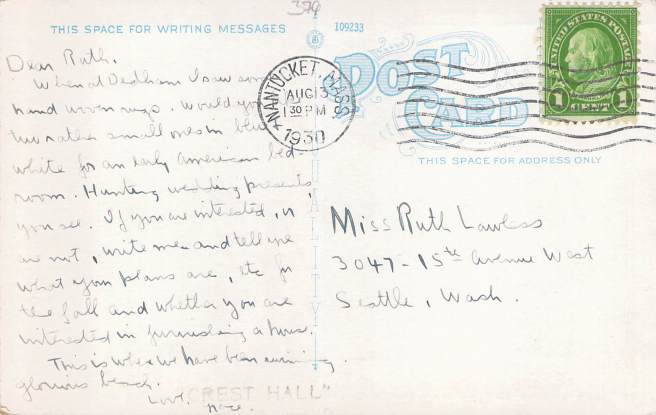 379
THIS SPACE FOR WRITING MESSAGES
109233
POST
CARD
UNITED STATES POSTAGE
1 CENT 1
NANTUCKET, MASS.
AUG 13
1 30 PM
1930
THIS SPACE FOR ADDRESS ONLY
QUALITY
Dear Ruth,
When at Dedham I saw some
hand woven rugs. Would you
rather small ones in blue
white for an early American bed-
room. Hunting wedding presents,
you see. If you are interested, or
are not, write me and tell me
what your plans are, etc for
the fall and whether you are
interested in furnishing a house.
This is where we have been swimming.
glorious beach.
Love,
Miss Ruth Lawless
3047 - 15th Avenue West
Seattle, Wash.
"CREST HALL"